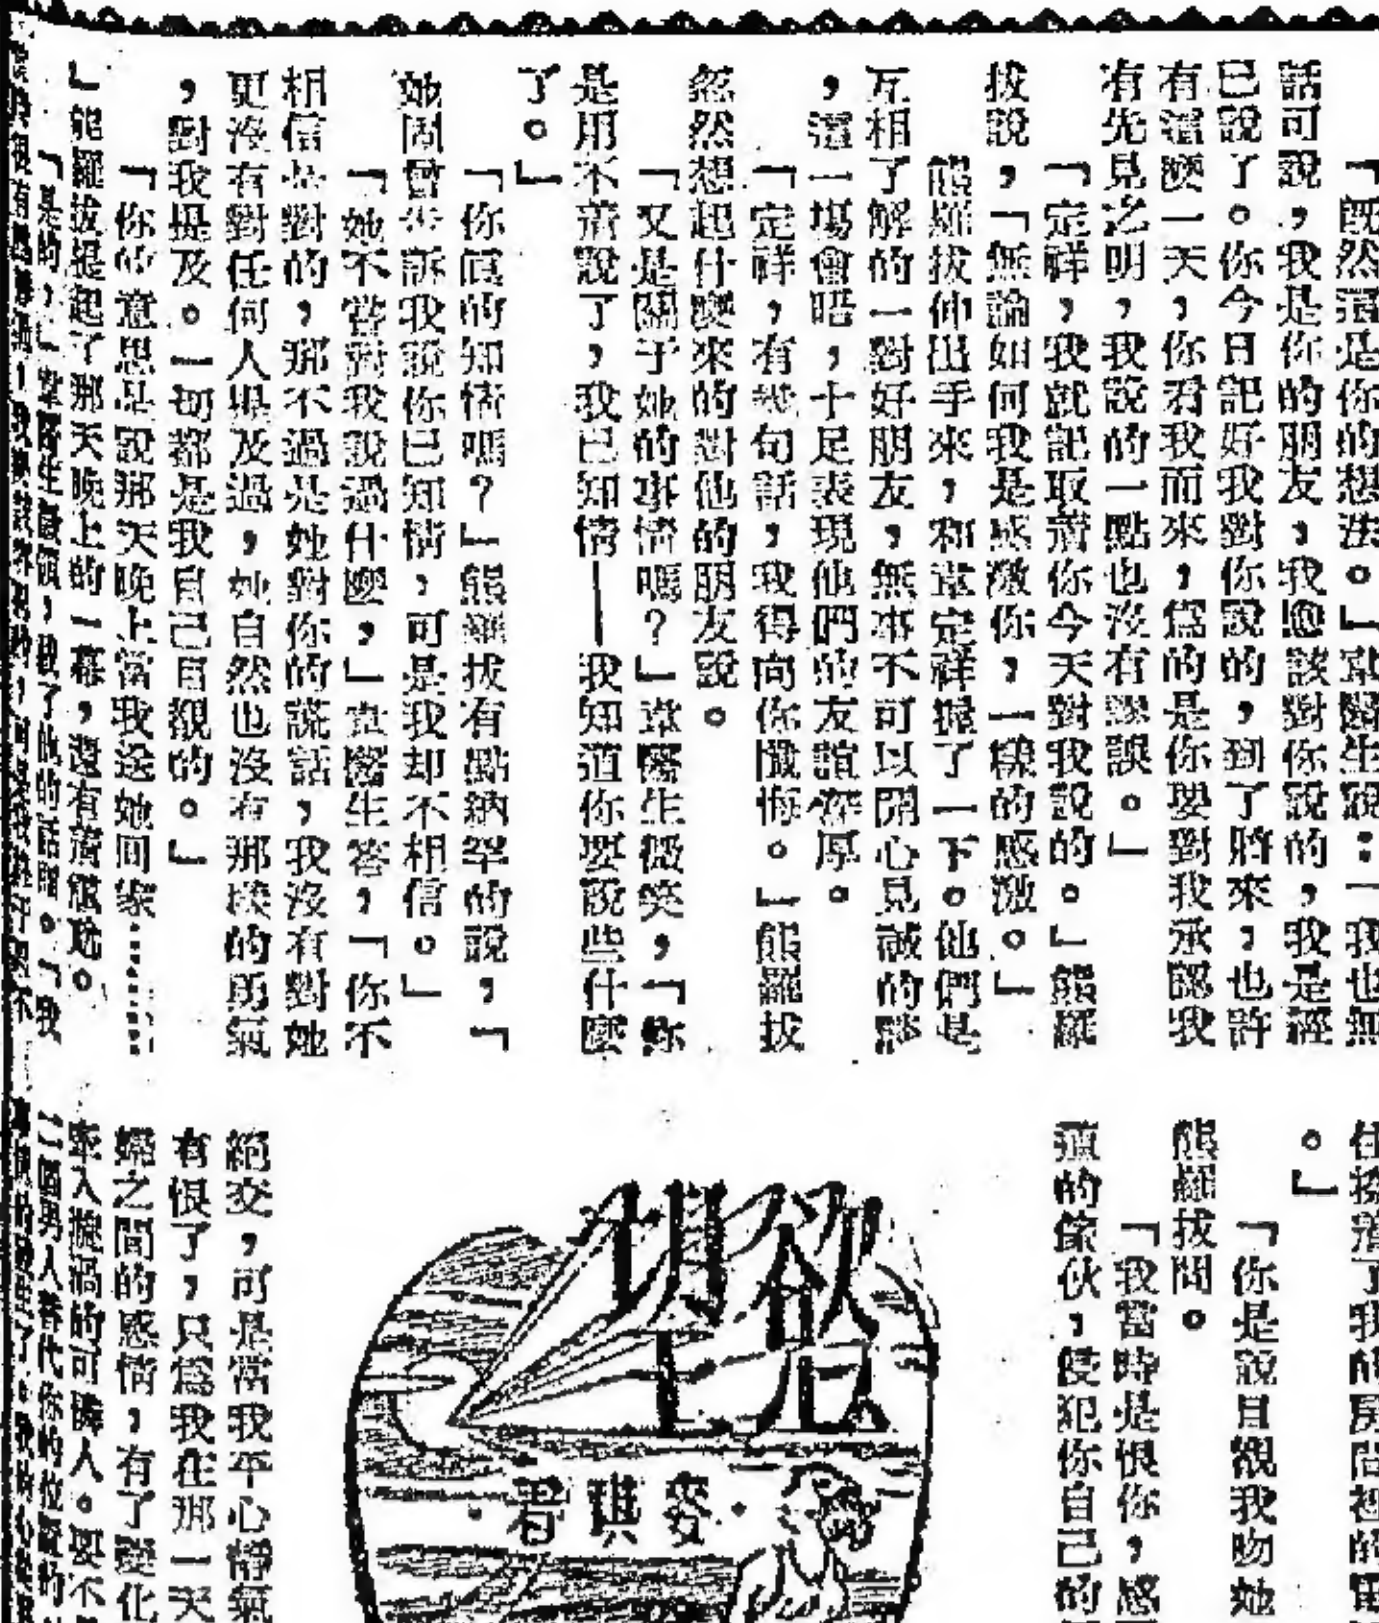 「既然這是你的想法。」韋醫生說：「我也無
話可說，我是你的朋友，我應該對你說的，我是經
已說了。你今日記好我對你說的，到了將來，也許
有這麼一天，你看我而來，爲的是你要對我承認我
有先見之明，我說的一點也沒有錯誤。」
「定祥，我就記取着你今天對我說的。」熊羅
拔說，「無論如何我是感激你，一樣的感激。」
熊羅拔伸出手來，和韋定祥握了一下。他們是
互相了解的一對好朋友，無事不可以開心見誠的談
，這一場會晤，十足表現他們的友誼深厚。
「定祥，有幾句話，我得向你懺悔。」熊羅拔
忽然想起什麼來的對他的朋友說。
「又是關于她的事情嗎？」韋醫生微笑，「你
是用不着說了，我已知情——我知道你要說些什麼
了。」
「你眞的知情嗎？」熊羅拔有點納罕的說，「
她固曾告訴我說你已知情，可是我却不相信。」
「她不曾對我說過什麼，」韋醫生答，「你不
相信是對的，那不過是她對你的謊話，我沒有對她
更沒有對任何人提及過，她自然也沒有那樣的勇氣
，對我提及。一切都是我自己目覩的。」
「你的意思是說那天晚上當我送她回家……
」熊羅拔提起了那天晚上的一幕，還有着尷尬。
「是的，」韋醫生頷頭，截了他的話柄。「我
任
了我的房
的
。」
「你是說目覩我吻她
熊羅拔問。
「我當時是恨你，感
這的傢伙，侵犯你自己的
慾望
麥琪著
絕交，可是當我平心靜氣
有恨了，只爲我在那一天
婦之間的感情，有了變化
的可憐人。要不
二個男人替代你的位置的